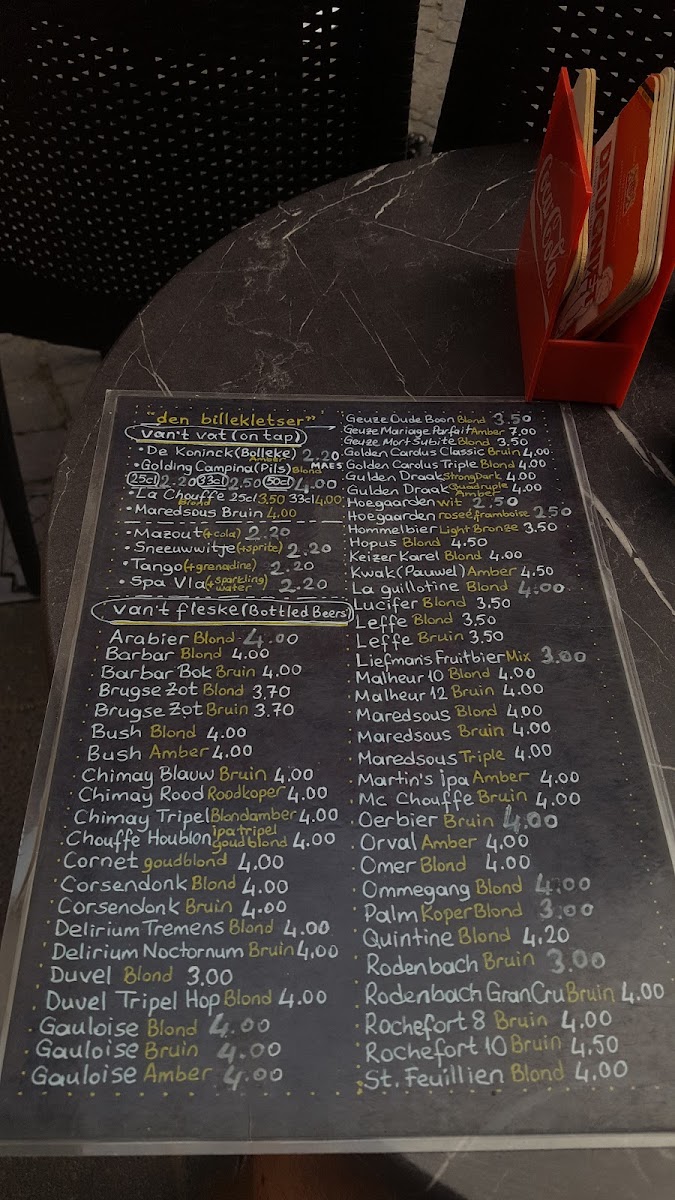 "den billekletser"
van't vat (on tap)
• De Koninck (Bolleke) Amber 2.20
• Golding Campina (Pils) Blond MAES
25cl 2.20 33cl 2.50 50cl 4.00
• La Chouffe Blond 25cl 3,50 33cl 4,00
• Maredsous Bruin 4,00
• Mazout (+cola) 2.20
• Sneeuwwitje (+sprite) 2.20
• Tango (+grenadine) 2.20
• Spa Vla (+sparkling water) 2.20
van't fleske (Bottled Beers)
Arabier Blond 4.00
Barbar Blond 4.00
Barbar Bok Bruin 4.00
Brugse Zot Blond 3,70
Brugse Zot Bruin 3.70
Bush Blond 4.00
Bush Amber 4,00
Chimay Blauw Bruin 4,00
Chimay Rood Roodkoper 4,00
Chimay Tripel Blondamber 4.00
Chouffe Houblon ipa tripel goudblond 4,00
Cornet goudblond 4,00
Corsendonk Blond 4.00
Corsendonk Bruin 4.00
Delirium Tremens Blond 4.00
Delirium Noctornum Bruin 4,00
Duvel Blond 3.00
Duvel Tripel Hop Blond 4.00
Gauloise Blond 4.00
Gauloise Bruin 4.00
Gauloise Amber 4.00
Geuze Oude Boon Blond 3.50
Geuze Mariage Parfait Amber 7.00
Geuze Mort Subite Blond 3,50
Golden Carolus Classic Bruin 4.00
Golden Carolus Triple Blond 4.00
Gulden Draak Strong Dark 4.00
Gulden Draak Quadruple Amber 4.00
Hoegaarden wit 2,50
Hoegaarden roseé, framboise 2.50
Hommelbier Light Bronze 3,50
Hopus Blond 4.50
Keizer Karel Blond 4.00
Kwak (Pauwel) Amber 4,50
La guillotine Blond 4.00
Lucifer Blond 3,50
Leffe Blond 3,50
Leffe Bruin 3,50
Liefmans Fruitbier Mix 3.00
Malheur 10 Blond 4.00
Malheur 12 Bruin 4.00
Maredsous Blond 4,00
Maredsous Bruin 4,00
Maredsous Triple 4.00
Martin's ipa Amber 4,00
Mc Chouffe Bruin 4,00
Oerbier Bruin 4.00
Orval Amber 4.00
Omer Blond 4.00
Ommegang Blond 4.00
Palm Koper Blond 3.00
Quintine Blond 4,20
Rodenbach Bruin 3.00
Rodenbach GranCru Bruin 4,00
Rochefort 8 Bruin 4.00
Rochefort 10 Bruin 4.50
St. Feuillien Blond 4.00
Coca-Cola